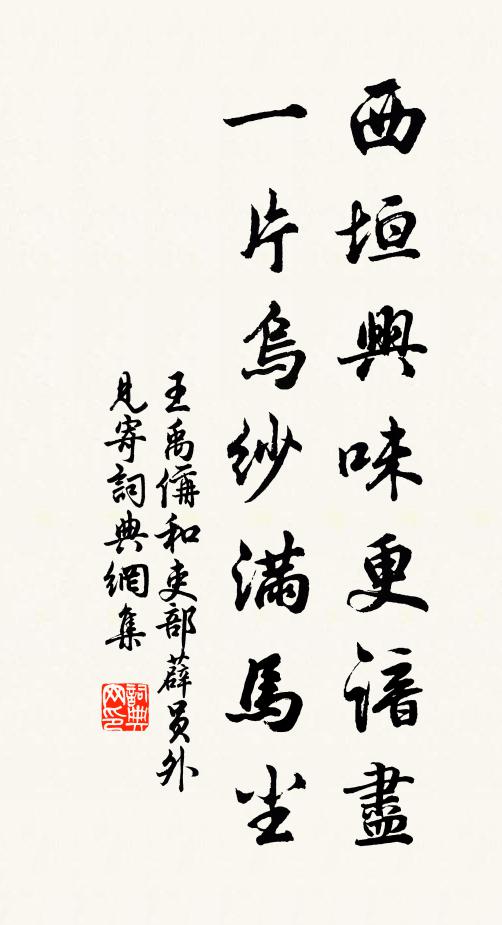 西垣興味更諳盡
一片烏紗滿馬尘
王禹偁和吏部薛員外
見寄詞典網集
詞典
网印